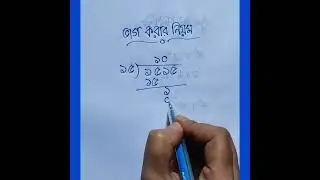 ভাগ করার নিয়ম
১০
১৫ ) ১৫১৫
১৫
১
০